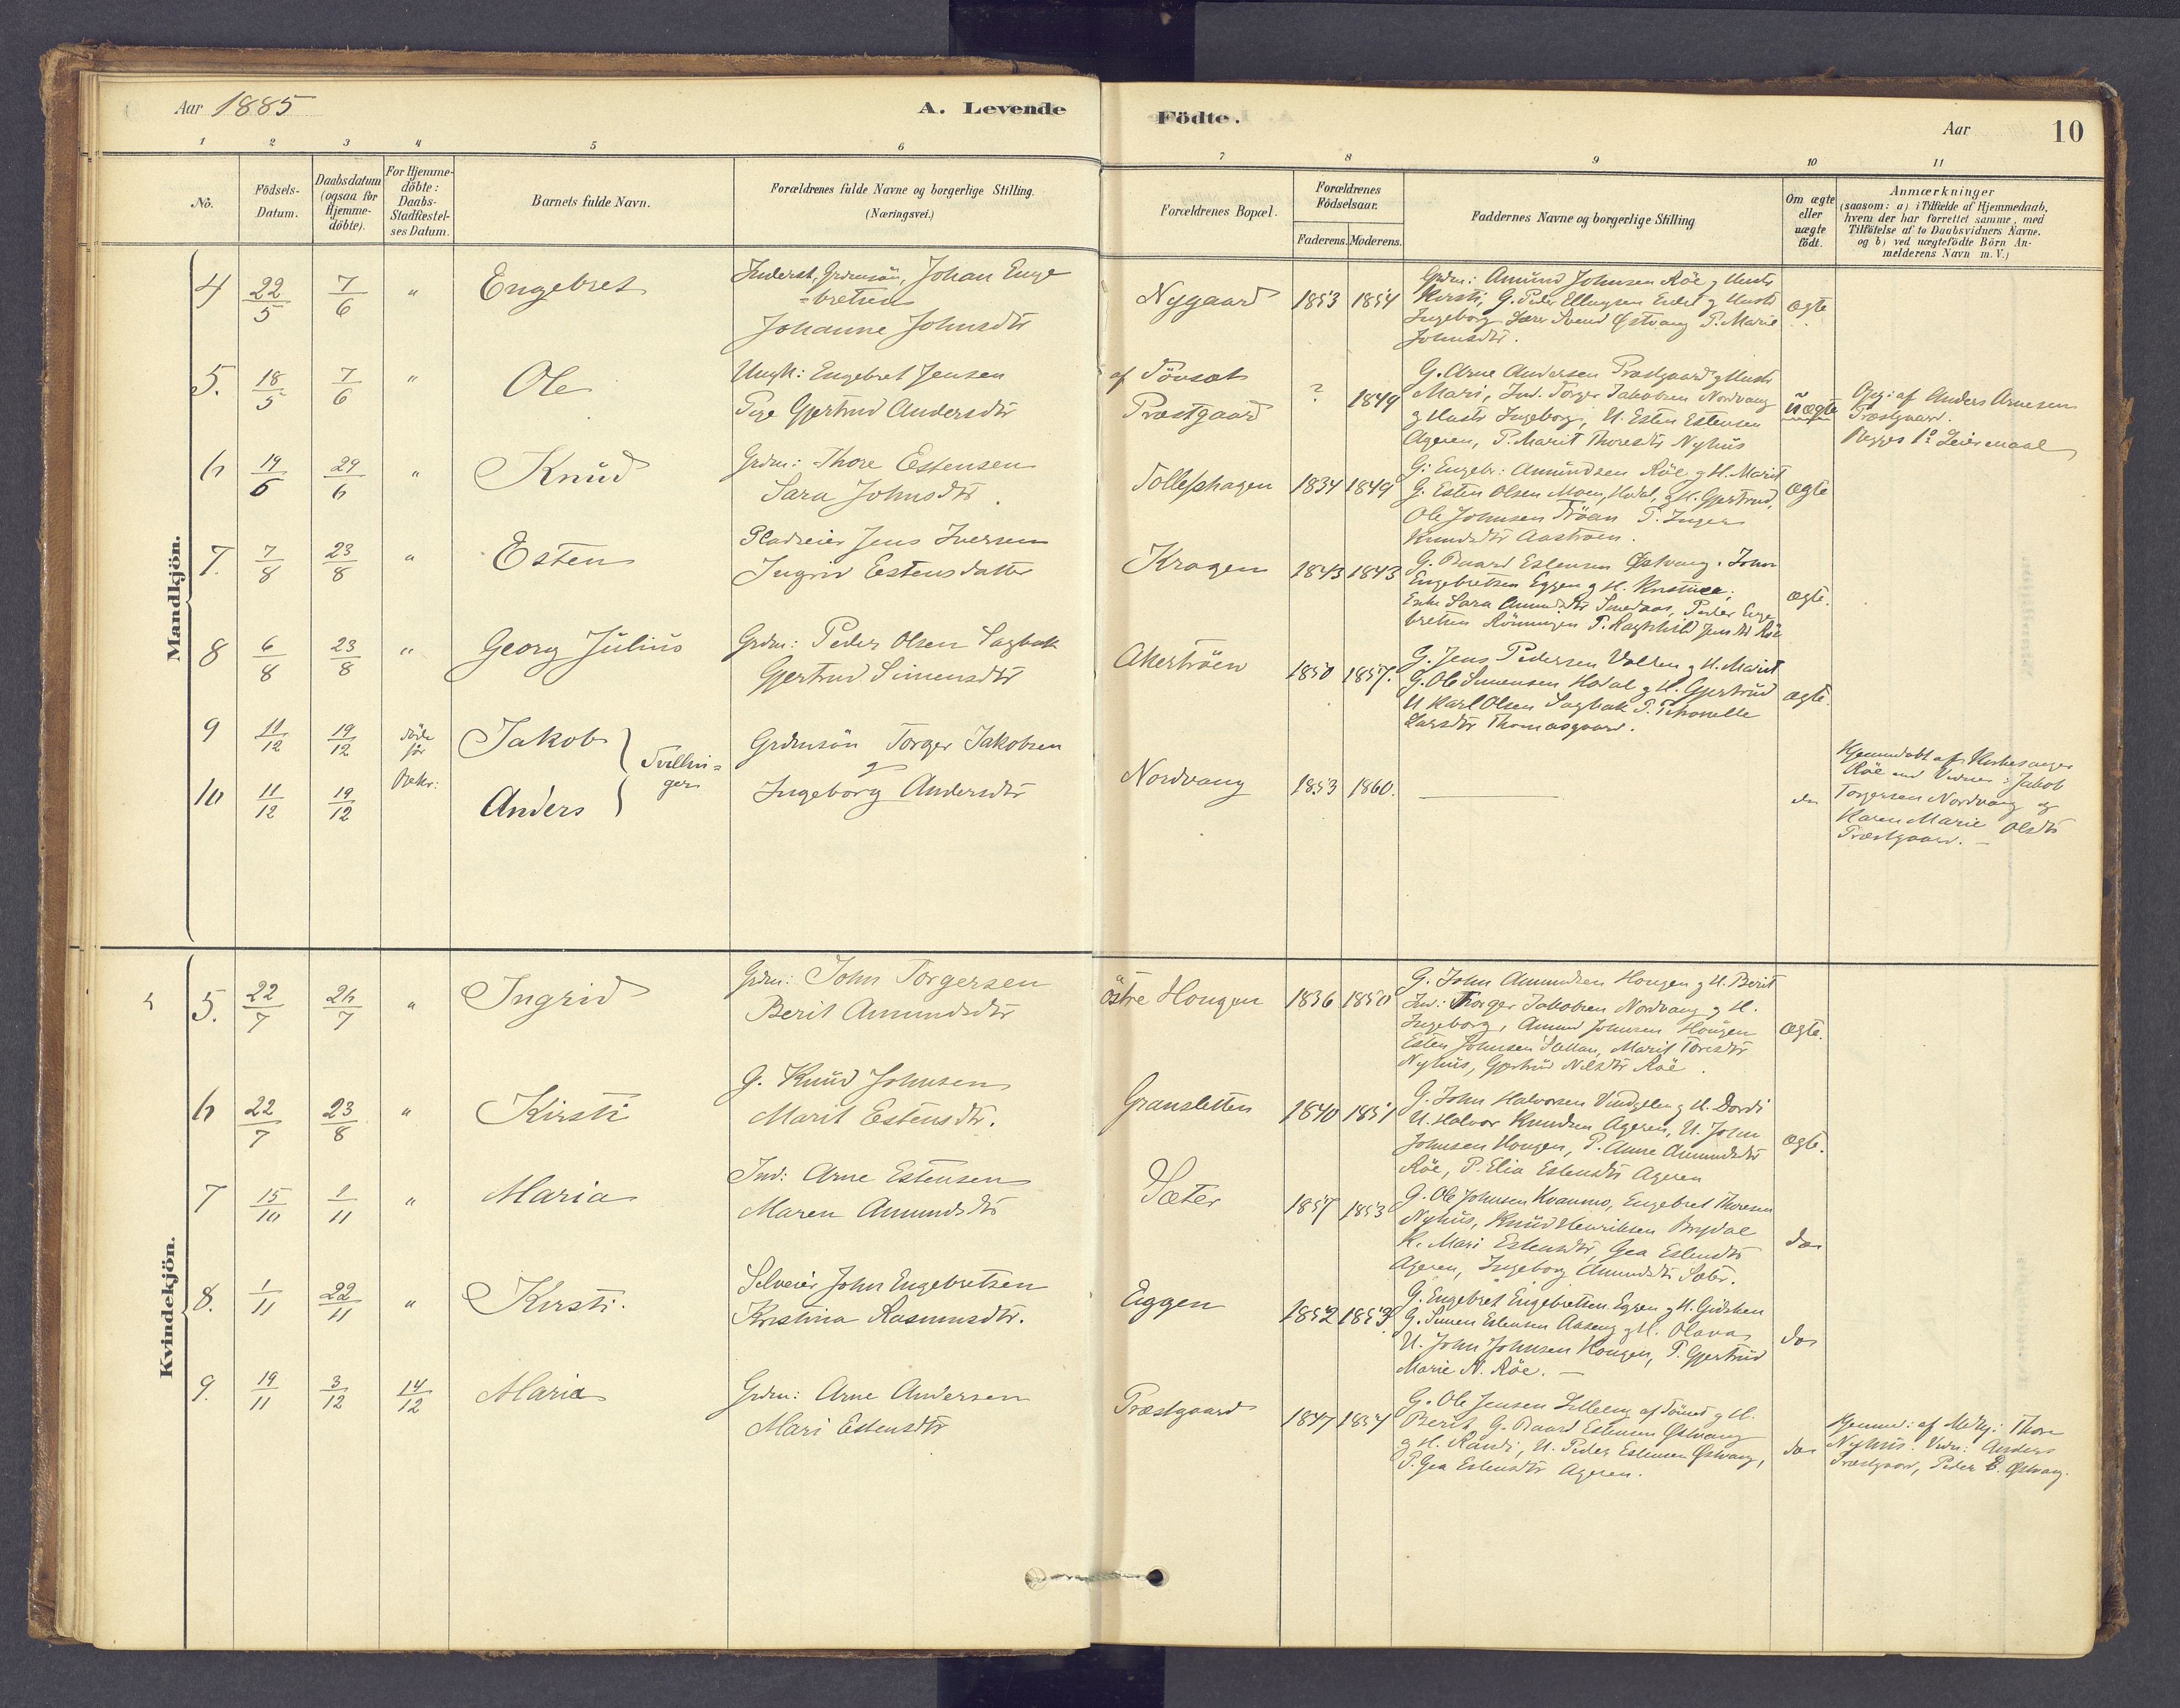 Aar 1885
A. Levende
Födte.
Aar
10
1 2 3 4 5 6 7 8 9 10 11
No.
Födsels-
Datum.
Daabsdatum
(ogsaa for
Hjemme-
döbte).
For Hjemme-
döbte:
Daabs-
Stadfæstel-
ses Datum.
Barnets fulde Navn.
Forældrenes fulde Navne og borgerlige Stilling.
(Næringsvei.)
Forældrenes Bopæl.
Forældrenes
Födselsaar.
Faderens. Moderens.
Faddernes Navne og borgerlige Stilling
Om ægte
eller
uægte
födt.
Anmærkninger
(saasom: a) i Tilfælde af Hjemmedaab,
hvem der har forrettet samme, med
Tilföielse af to Daabsvidners Navne.
og b) ved uægtefödte Börn An-
melderens Navn m. V.)
Mandkjön.
4 22/5 7/6 " Engebret
Inderst, Grdmsön, Johan Enge
=bretsen
Johanne Johnsdtr
Nygaard 1853 1854
Grdm: Amund Johnsen Röe g Hustr
Kirsti, G. Peder Ellingsen g Hustr
Ingeborg Svend Østvang P. Marie
Johnsdtr.
ægte
5. 18/5 7/6 " Ole
Ungk: Engebret Jensen
Pige Gjertrud Andersdtr
af Tönset
Præstgaard ? 1849
G. Arne Andersen Præstgaard g Hustr
Mari, Ind. Torger Jakobsen Nordvang
g Hustr Ingeborg, U. Esten Estensen
Ageren, P. Marit Thoresdtr Nyhus
uægte
Opg: af Anders Arnesen
Præstgaard.
Begges 1ste Leiermaal
6 19/6 29/6 " Knud
Grdm: Thore Estensen
Sara Johnsdtr.
Tollefshagen 1834 1849
G: Engebr: Amundsen Röe g H. Marit
G. Esten Olsen Moen, Hodal, g H. Gjertrud,
Ole Johnsen Tröan P. Inger
Knudsdtr Aaströen.
ægte
7. 7/8 23/8 " Esten
Pladseier Jens Iversen
Ingrid Estensdatter
Kragen 1843 1843
G. Baard Estensen Østvang, John
Engebretsen Eggen g H. Kristine;
Enke Sara Amundsdtr Smedaas, Peder Enge
bretsen Rönningen P. Ragnhild Jensdtr Röe
ægte.
8 6/8 23/8 " Georg Julius
Grdm: Peder Olsen Sagbak
Gjertrud Simensdtr
Akertröen 1850 1857.
G. Jens Pedersen Volden g H. Marit
G. Ole Simensen Hodal g H. Gjertrud
U Karl Olsen Sagbak P. Petronelle
Larsdtr Thomasgaard.
ægte.
9 11/12 19/12 döde
för
Bekr:
Jakob
10 11/12 19/12 Anders
Tvillin=
ger
Grdmsön Torger Jakobsen
g
Ingeborg Andersdtr
Nordvang 1853 1860.
do
Hjemmedöbt af Kirkesanger
Röe med Vidner: Jakob
Torgersen Nordvang og
Karen Marie Olsdtr
Præstgaard. —
Kvindekjön.
5. 22/7 26/7 " Ingrid
Grdm: John Torgersen
Berit Amundsdtr
östre Hougen 1836 1850
G. John Amundsen Hougen g H. Berit
Ind: Thorger Jakobsen Nordvang g H.
Ingeborg, Amund Johnsen Hougen
Esten Johnsen, Marit Toresdtr
Nyhus, Gjertrud Nilsdtr Röe.
ægte.
6 22/7 23/8 " Kirsti
G. Knud Johnsen
Marit Estensdtr.
Gransletten 1840 1851
G. John Halvorsen g H. Dordi
U. Halvor Knudsen Ageren, U. John
Johnsen Hougen, P. Anne Amundsdtr
Röe, P. Elia Estensdtr Ageren
ægte.
7 15/10 1/11 " Maria
Ind: Arne Estensen
Maren Amundsdtr
Sæter 1857 1853
G. Ole Johnsen Kvanmo, Engebret Thoresen
Nyhus, Knud Henriksen Brydal
K. Mari Estensdtr, Gea Estensdtr
Ageren, Ingeborg Amundsdtr Sæter.
do
8. 1/11 22/11 " Kirsti.
Selveier John Engebretsen
Kristina Rasmusdtr.
Eggen 1852 1853
G. Engebret Engebretsen Eggen g H. Gidsken
G. Simen Estensen Aaseng g H. Olava
U. John Johnsen Hougen, P. Gjertrud
Marie N. Röe. —
do
9. 19/11 3/12 14/12 Maria
Grdm: Arne Andersen
Mari Estensdtr
Præstgaard 1847 1854
G. Ole Jensen Lilleeng af Tönset g H.
Berit, G. Baard Estensen Østvang
g H. Randi, U. Peder Estensen Østvang,
P. Gea Estensdtr Ageren.
do
Hjemmed: af Thore
Nyhus. Vidn: Anders
Præstgaard, Peder E. Østvang.